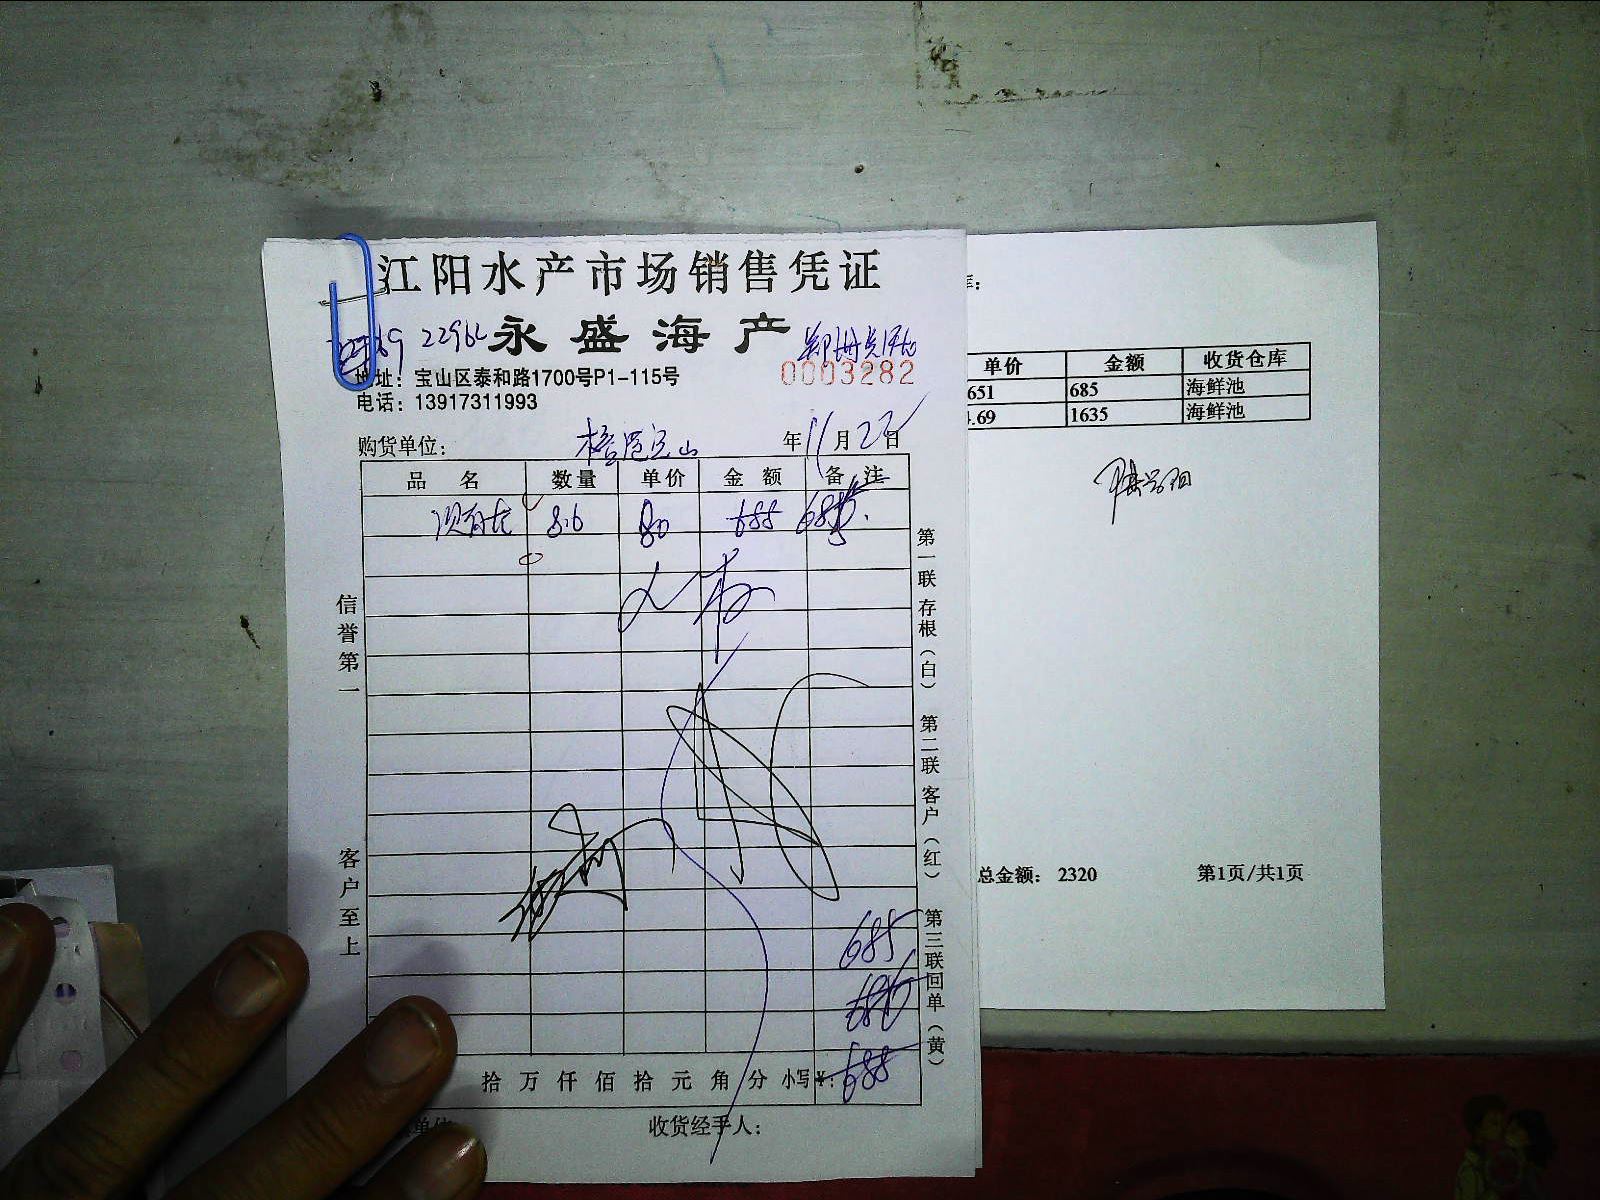 江阳水产市场销售凭证
永盛海产
0003282
地址：宝山区泰和路1700号P1-115号
电话：13917311993
购货单位： 年 11月22日
品名 数量 单价 金额 备注
8.6 80 688 685
信誉第一
客户至上
第一联存根（白） 第二联客户（红） 第三联回单（黄）
685
685
拾万仟佰拾元角分 小写¥：688
收货经手人：
单价 金额 收货仓库
651 685 海鲜池
.69 1635 海鲜池
总金额： 2320 第1页/共1页